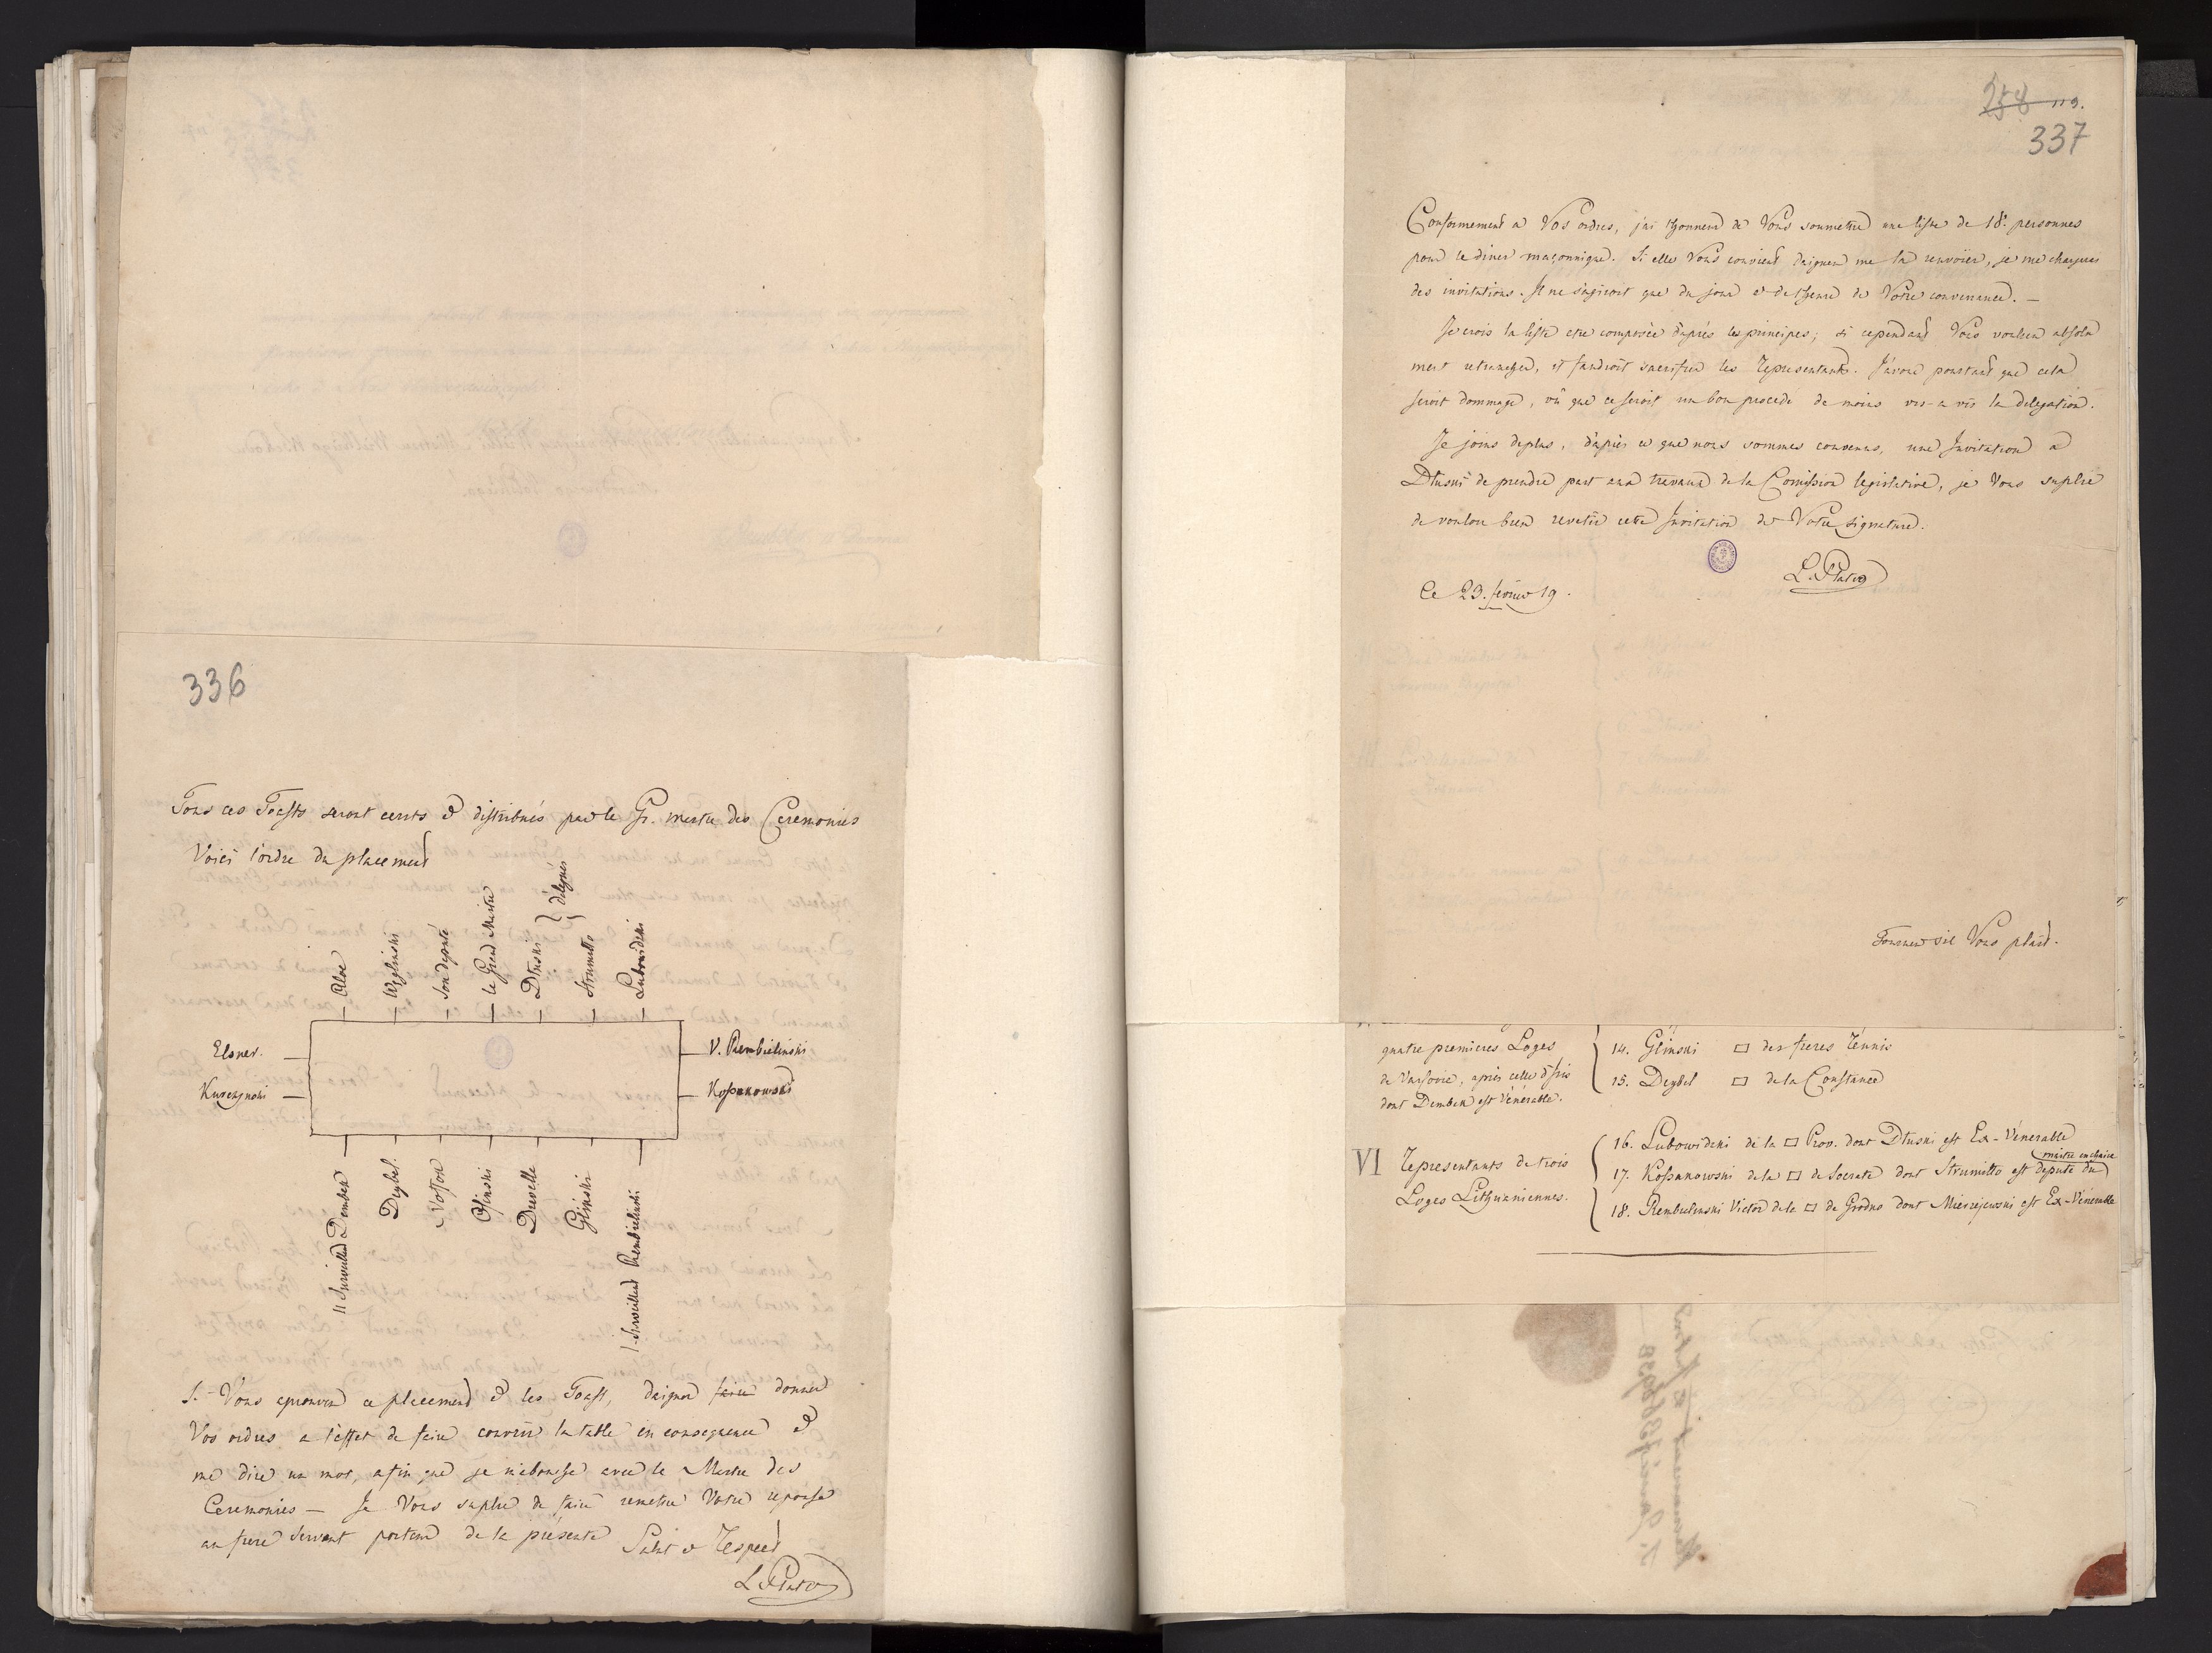 336
Tous ces Toasts seront ecrits & distribués par le Gr. Mestre des Ceremonies
Voici l'ordre du placement
Aloe
Węglinski
Son deputé
le Grand Mestre
Dłuski } délegués
Strumiłło
Lubowidzki
Elsner.
Kuszynski
V. Rembielinski
Kossakowski
II Surveillant Dembek
Deybel.
Nosson
Osinski
Duvelle
Glinski
I. Surveillant Rembielinski
Si Vous aprouvez ce placement & les Toast, daignez faire donner
Vos ordres a l'effet de faire couvrir la table en consequence &
me dire un mot, afin que je m'abouche avec le Mestre des
Ceremonies – Je Vous suplie de faire remettre Votre reponse
au frere servant porteur de la présente Salut & Respect
L. Plater
258 119.
337
Conformement a Vos ordres, j'ai l'honneur de Vous soumettre une liste de 18. personnes
pour le diner maçonnique. Si elle Vous convient daignez me la renvoier, je me chargerai
des invitations. Il ne s'agiroit que du jour & de l'heure de Votre convenance. –
Je crois la liste etre composée d'après les principes; si cependant Vous vouliez absolu
ment retrancher, il faudroit sacrifier les Representants. J'avoue pourtant que cela
seroit dommage, vû que ce seroit un bon procede de moins vis-a vis la delegation.
Je joins deplus, d'après ce que nous sommes convenus, une Invitation a
Dłuski de prendre part aux travaux de la Comission legislative, je Vous suplie
de vouloir bien revetir cette Invitation de Votre signature.
L. Plater
Ce 23. fevrier 19.
Tournez s'il Vous plait.
quatre premieres Loges
de Varsovie, après celle d'Isis
dont Dembek est Vénérable.
14. Glinski □ des freres Réunis
15. Deybel □ de la Constance
VI Representants de trois
Loges Lithuaniennes.
16. Lubowidzki de la □ Prov. dont Dłuski est Ex-Vénerable
maitre en chaire
17. Kossakowski de la □ de Socrate dont Strumiłło est deputé du
18. Rembielinski Victor de la □ de Grodno dont Mierzejewski est Ex-Venerable